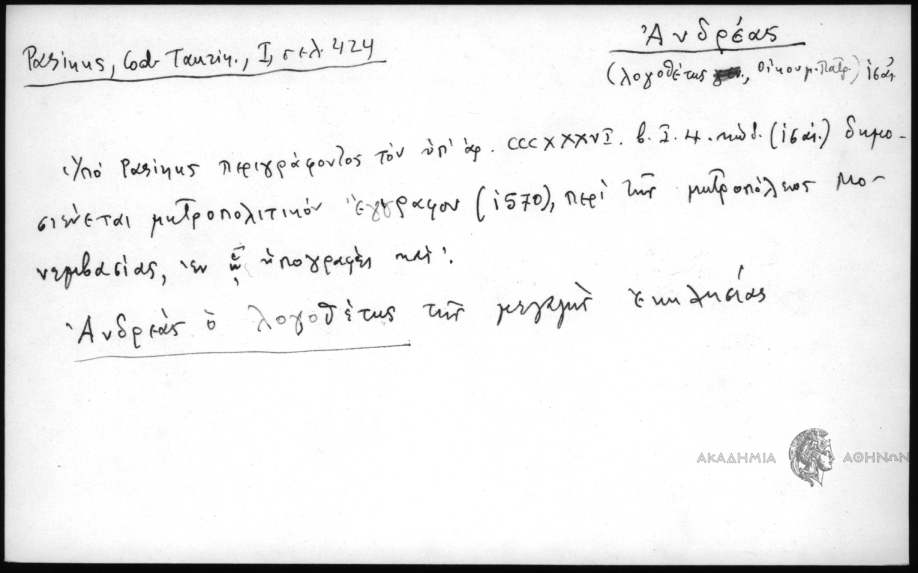 Ἀνδρέας
Pasinus, Cod. Taurin., I, σελ. 424
(λογοθέτης, Οἰκουμ. Πατρ.)
Ὑπό Pasinus περιγράφοντος τὸν ὑπ' ἀρ. CCCXXXVI. b. I. 4. κώδ. (ις΄ αἰ.) δημο-
σιεύεται μητροπολιτικόν ἔγγραφον (1570), περί τῆς μητροπόλεως Μο-
νεμβασίας, ἐν ὑπογραφές καί:
Ἀνδρέας ὁ λογοθέτης τῆς μεγάλης ἐκκλησίας
ΑΚΑΔΗΜΙΑ ΑΘΗΝΩΝ